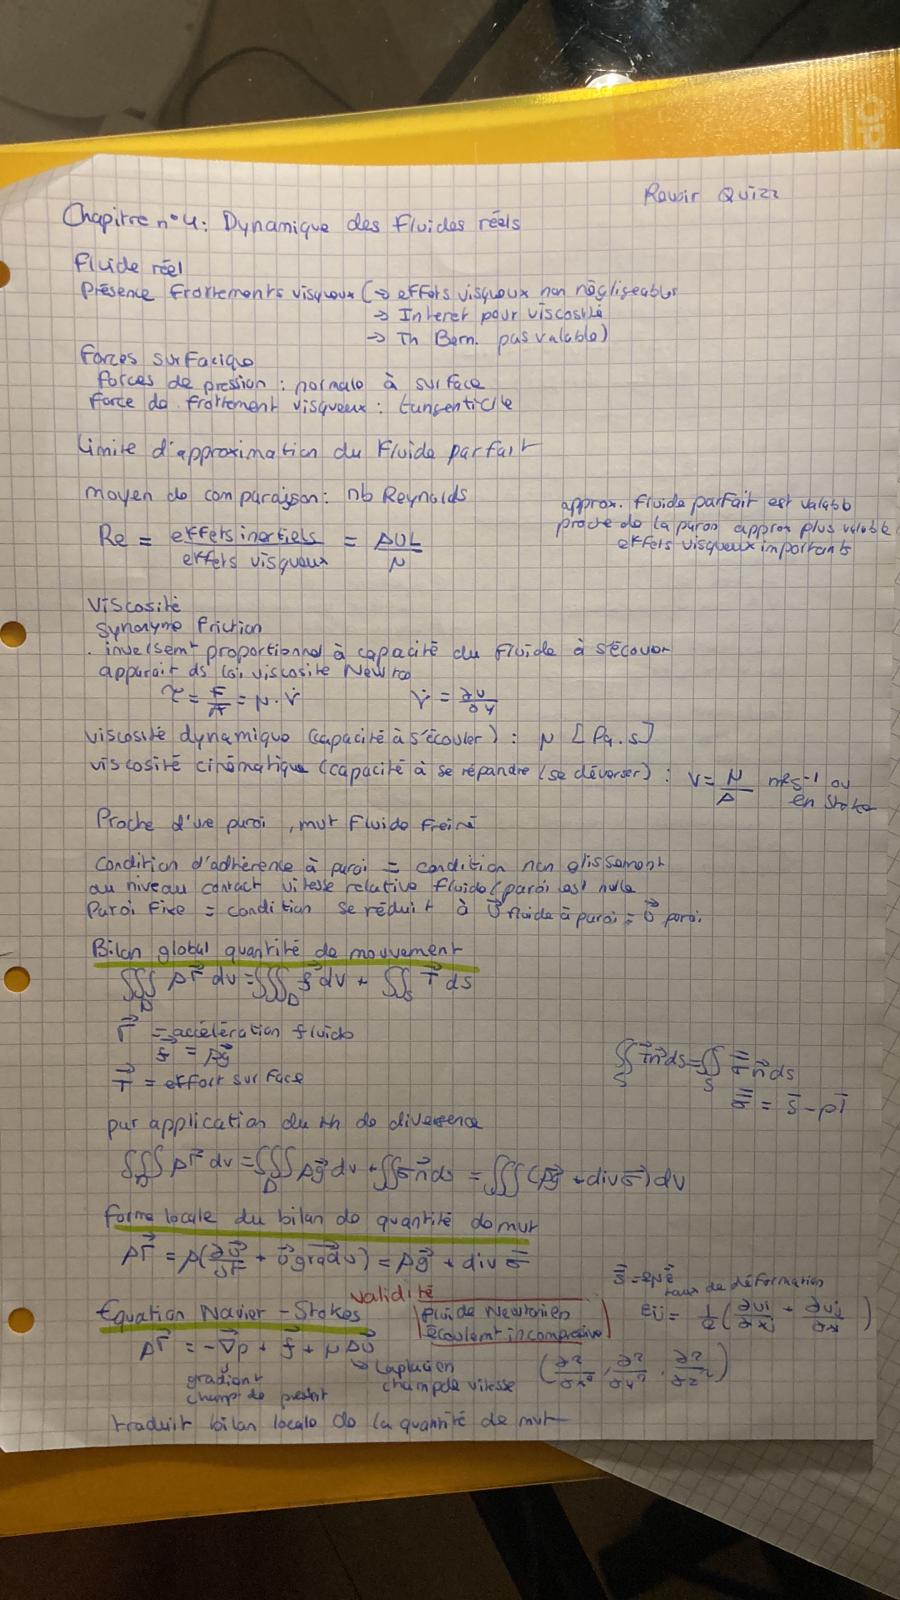 Revoir Quizz
Chapitre n°4: Dynamique des fluides réels
Fluide réel
Présence frottements visqueux (→ effets visqueux non négligeables
→ Interet pour viscosité
→ Th Bern. pas valable)
Forces surfacique
forces de pression : normale à surface
force de frottement visqueux : tangentielle
Limite d'approximation du Fluide parfait
moyen de comparaison: nb Reynolds
approx. fluide parfait est valable
proche de la paroi approx plus valable
effets visqueux importants
Re = effets inertiels / effets visqueux = ρUL / μ
Viscosité
synonyme friction
. inversemt proportionnel à capacité du fluide à s'écouler
apparait ds loi viscosité Newton
τ = F/A = μ · γ̇    γ̇ = ∂u/∂y
viscosité dynamique (capacité à s'écouler) : μ [Pa.s]
viscosité cinématique (capacité à se répandre (se déverser) : ν = μ/ρ m²s⁻¹ ou
en Stokes
Proche d'une paroi, mvt Fluide freiné
Condition d'adhérence à paroi = condition non glissement
au niveau contact vitesse relative fluide/paroi est nulle
Paroi fixe = condition se réduit à U⃗ fluide à paroi = U⃗ paroi
Bilan global quantité de mouvement
∭_D ρΓ⃗ dv = ∭_D f⃗ dv + ∬_S T⃗ ds
Γ⃗ = accélération fluide
f⃗ = ρg⃗
T⃗ = effort surface
∬_S T⃗n⃗ ds = ∬_S σ̿ n⃗ ds
σ̿ = S̿ - pI̿
par application du th de divergence
∭_D ρΓ⃗ dv = ∭_D ρg⃗ dv + ∬σ̿n⃗ ds = ∭(ρg⃗ + div σ̿) dv
forme locale du bilan de quantité de mvt
ρΓ⃗ = ρ(∂U⃗/∂t + U⃗ grad U) = ρg⃗ + div σ̿
S̿ = 2με̿
taux de déformation
εij = 1/2 (∂ui/∂xj + ∂uj/∂xi)
Validité
Equation Navier-Stokes
fluide Newtonien
écoulemt incompressive
ρΓ⃗ = -∇⃗p + f⃗ + μΔU⃗
gradient
champ de pression
↳ Laplacien
champ de vitesse
(∂²/∂x², ∂²/∂y², ∂²/∂z²)
traduit bilan locale de la quantité de mvt